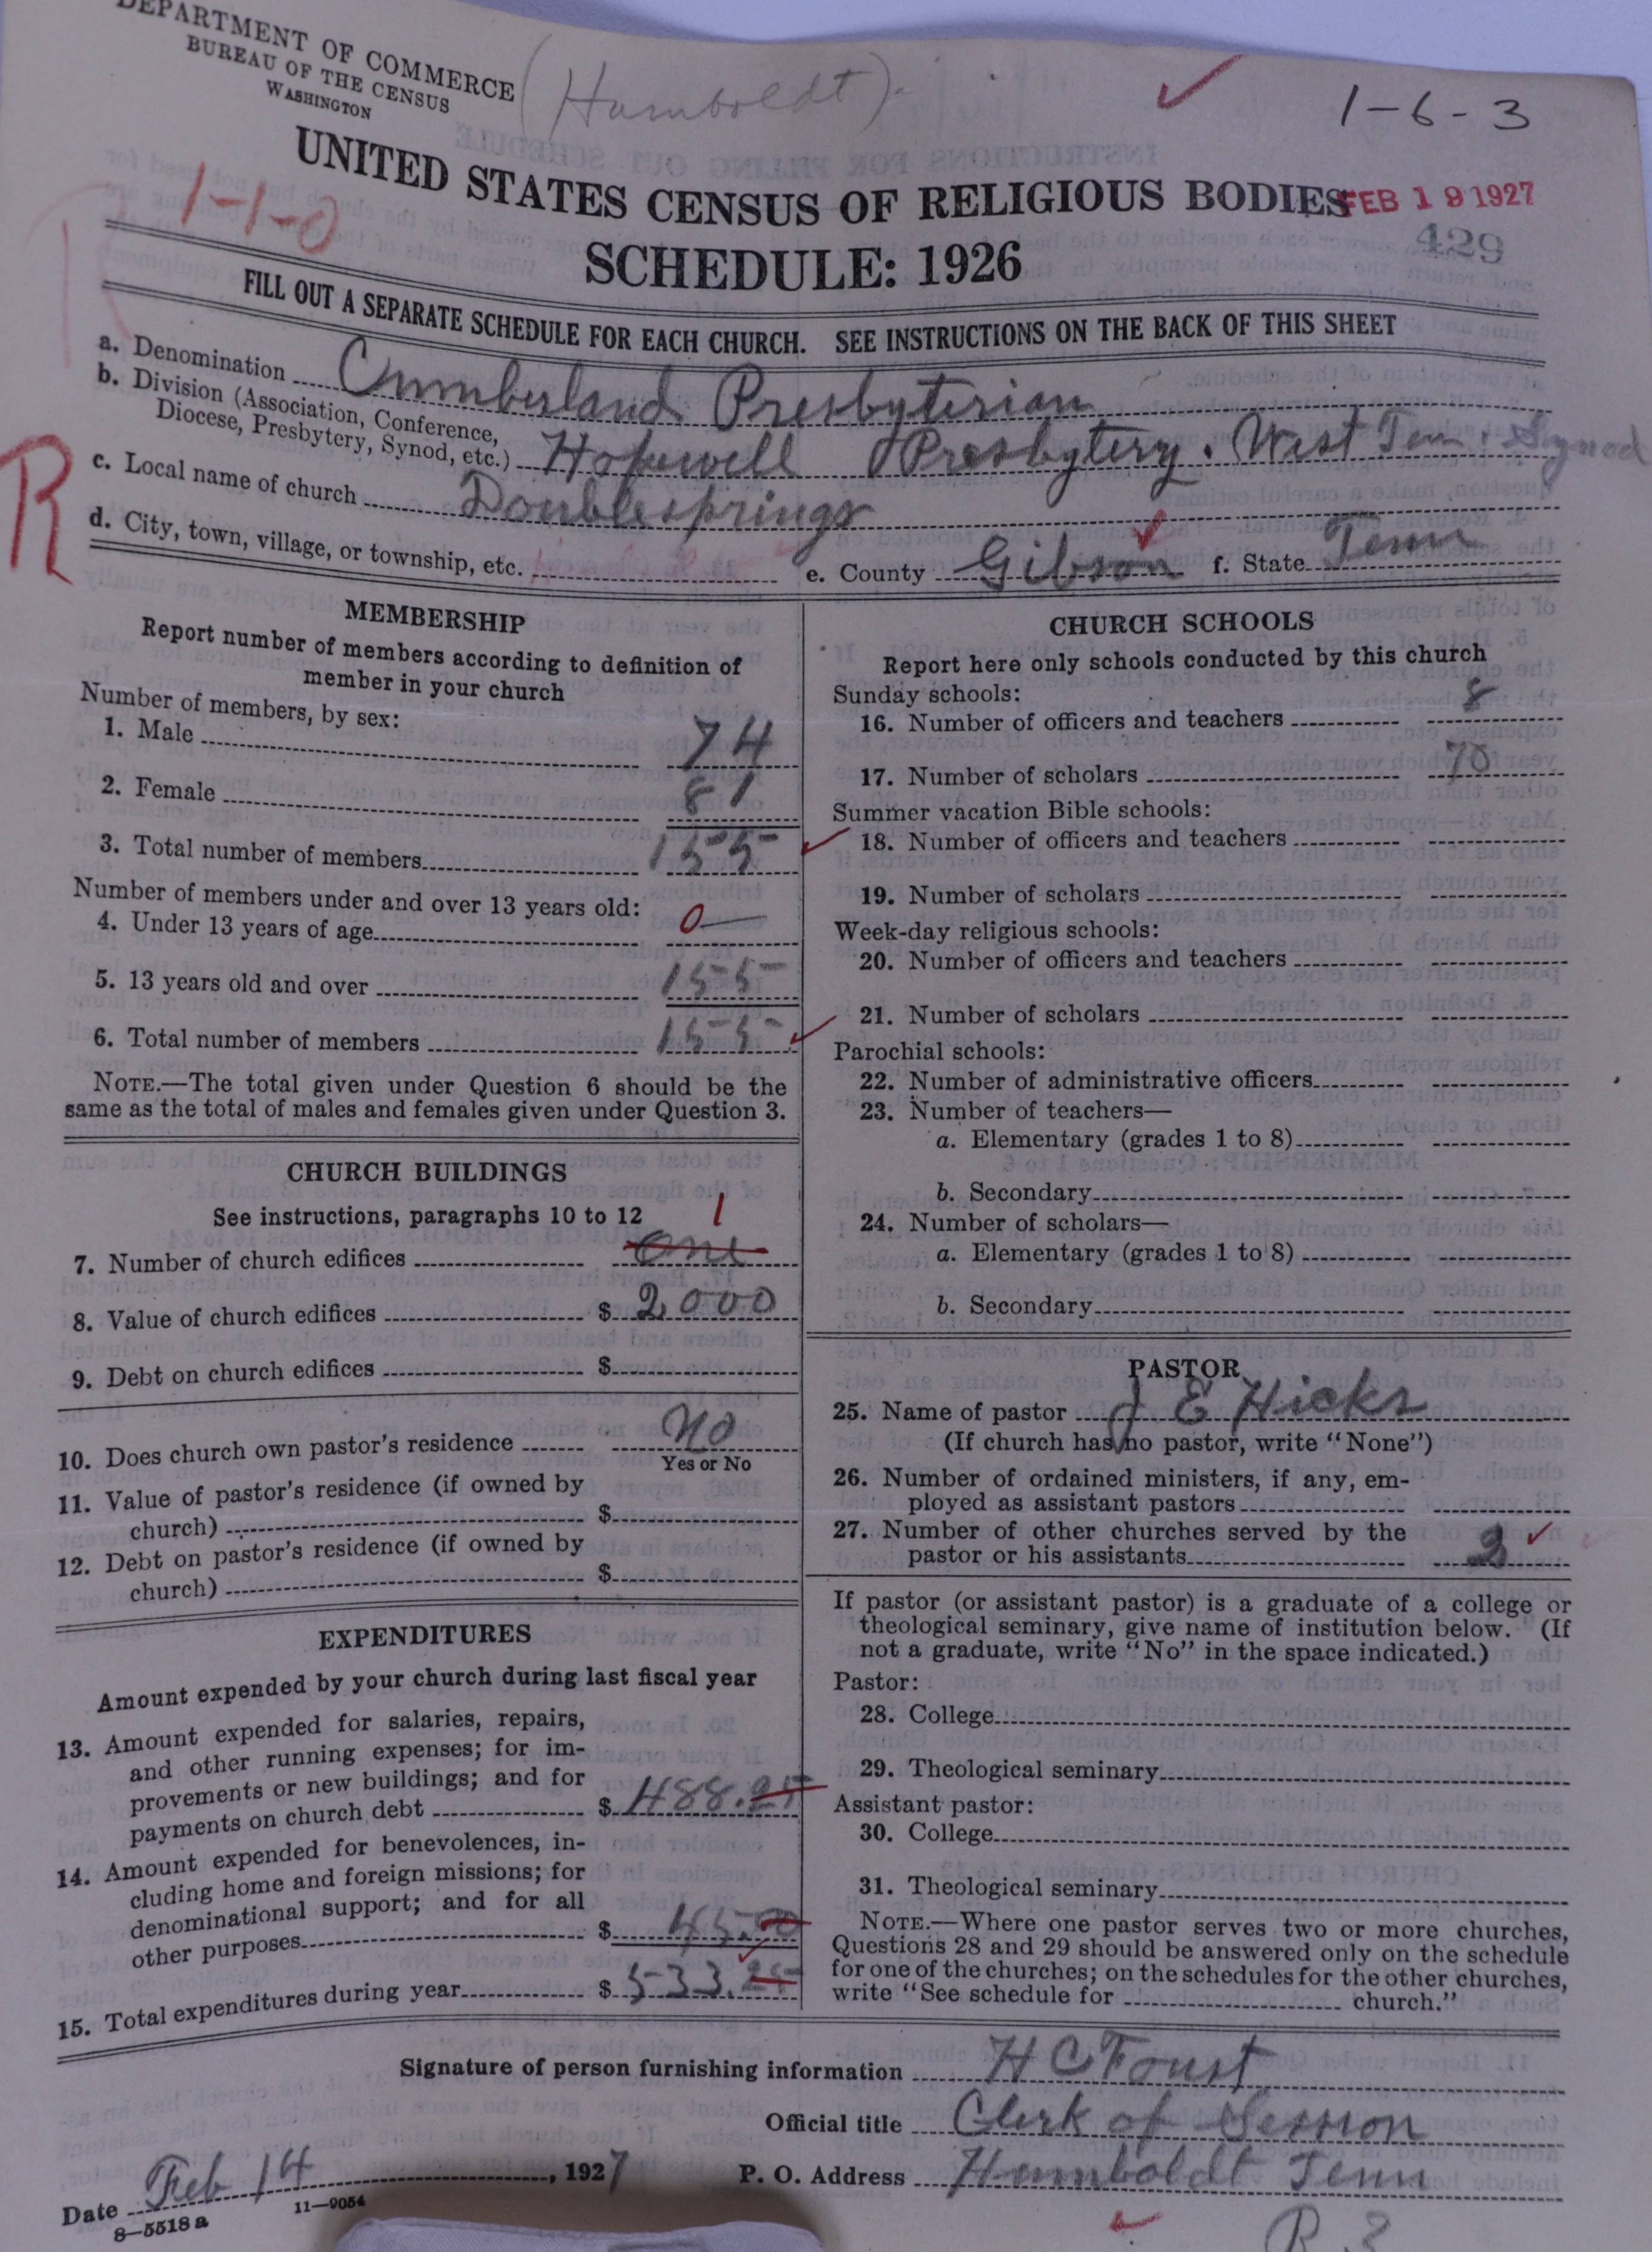 DEPARTMENT OF COMMERCE
BUREAU OF THE CENSUS
WASHINGTON
(Humboldt).
1-6-3
UNITED STATES CENSUS OF RELIGIOUS BODIES
FEB 19 1927
1-1-0
429
SCHEDULE: 1926
FILL OUT A SEPARATE SCHEDULE FOR EACH CHURCH. SEE INSTRUCTIONS ON THE BACK OF THIS SHEET
R
a. Denomination Cumberland Presbyterian
b. Division (Association, Conference,
Diocese, Presbytery, Synod, etc.) Hopewell Presbytery. West Tenn. Synod
c. Local name of church Doublesprings
R
d. City, town, village, or township, etc. e. County Gibson f. State Tenn
MEMBERSHIP
Report number of members according to definition of
member in your church
Number of members, by sex:
1. Male 74
2. Female 81
3. Total number of members 155
Number of members under and over 13 years old:
4. Under 13 years of age 0
5. 13 years old and over 155
6. Total number of members 155
NOTE.—The total given under Question 6 should be the
same as the total of males and females given under Question 3.
CHURCH BUILDINGS
See instructions, paragraphs 10 to 12
1
7. Number of church edifices One
8. Value of church edifices $ 2000
9. Debt on church edifices $
10. Does church own pastor's residence No
Yes or No
11. Value of pastor's residence (if owned by
church) $
12. Debt on pastor's residence (if owned by
church) $
EXPENDITURES
Amount expended by your church during last fiscal year
13. Amount expended for salaries, repairs,
and other running expenses; for im-
provements or new buildings; and for
payments on church debt $ 488.25
14. Amount expended for benevolences, in-
cluding home and foreign missions; for
denominational support; and for all
other purposes $ 45.00
15. Total expenditures during year $ 533.25
CHURCH SCHOOLS
Report here only schools conducted by this church
Sunday schools:
16. Number of officers and teachers 8
17. Number of scholars 70
Summer vacation Bible schools:
18. Number of officers and teachers
19. Number of scholars
Week-day religious schools:
20. Number of officers and teachers
21. Number of scholars
Parochial schools:
22. Number of administrative officers
23. Number of teachers—
a. Elementary (grades 1 to 8)
b. Secondary
24. Number of scholars—
a. Elementary (grades 1 to 8)
b. Secondary
PASTOR
25. Name of pastor J E Hicks
(If church has no pastor, write "None")
26. Number of ordained ministers, if any, em-
ployed as assistant pastors
27. Number of other churches served by the
pastor or his assistants
If pastor (or assistant pastor) is a graduate of a college or
theological seminary, give name of institution below. (If
not a graduate, write "No" in the space indicated.)
Pastor:
28. College
29. Theological seminary
Assistant pastor:
30. College
31. Theological seminary
NOTE.—Where one pastor serves two or more churches,
Questions 28 and 29 should be answered only on the schedule
for one of the churches; on the schedules for the other churches,
write "See schedule for church."
Signature of person furnishing information H C Foust
Official title Clerk of Session
Date Feb 14, 1927 P. O. Address Humboldt Tenn
8—5518 a 11—9054
R. 3